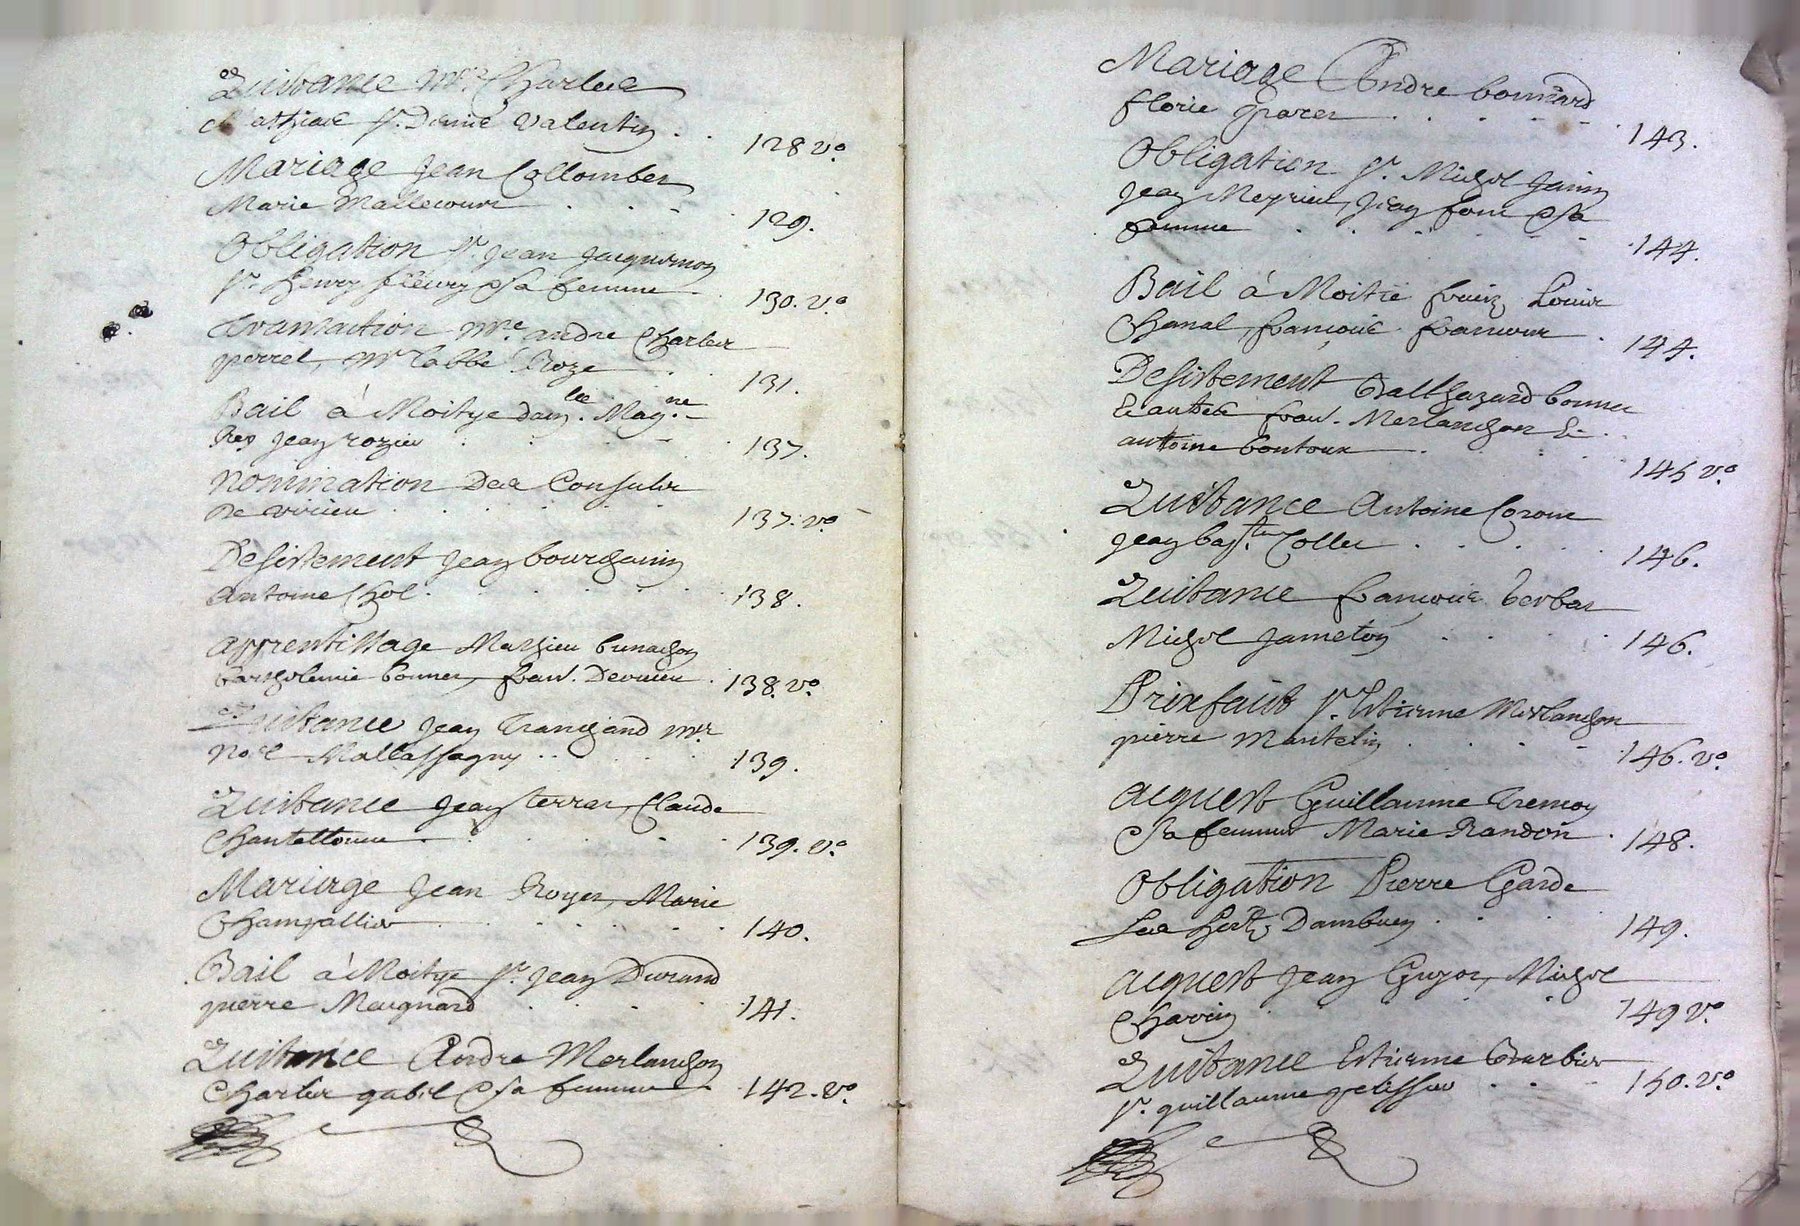 Quittance Mre Charles
Mathias Sr. Denis Valentin . . 128 vo.
Mariage Jean Collomber
Marie Mallecour . . . 129.
Obligation Sr. Jean Jacquemon
Sr. henry fleury & sa femme . 130. vo.
Transaction Mre. andre Charles
perret, Mr l'abbé Roze . . 131.
Bail à Moitye dam.lle Mag.ne
Rey Jean rozier . . . . 137.
Nomination Des Consuls
De virieu . . . . . . 137. vo.
Desistement Jean bourchanin
Antoine Chol . . . . . 138.
apprentissage Mathieu bunachon
barthelemie bonner, frans. Devirieu . 138. vo.
Quittance Jean Tranchand Mr
Noel Mallassagny . . . . 139.
Quittance Jean terrar, Claude
Chantellouve . . . . . 139. vo.
Mariage Jean Royer, Marie
Champallier . . . . . . 140.
Bail à Moitye Sr. Jean Durand
pierre Maignard . . . . 141.
Quittance Andre Merlanchon
Charles gabil & sa femme . 142. vo.
Mariage Andre bonnard
florie Garer . . . . . 143.
Obligation Sr. Michel Janin
Jean Meyrieu, Jean four & sa
femme . . . . . . 144.
Bail à Moitié Louis
Chanal, françois francour . 144.
Desistement Balthazard bonner
& autres frans. Merlanchon &
antoine bontoux . . . 145 vo.
Quittance Antoine Coronn
Jean bapt. Coller . . . . 146.
Quittance françois berbar
Michel Jameton . . . . 146.
Prixfaict Sr. Estienne Merlanchon
pierre Mantelin . . . . 146. vo.
acquest Guillaume Tremoy
& sa femme Marie Randon . 148.
Obligation Pierre Garde
Les herit. Dambuen . . . . 149.
acquest Jean Guyor, Michel
Charvin . . . . . . 149 vo.
Quittance Estienne Barbier
Sr. guillaume pelissier . . . 150. vo.